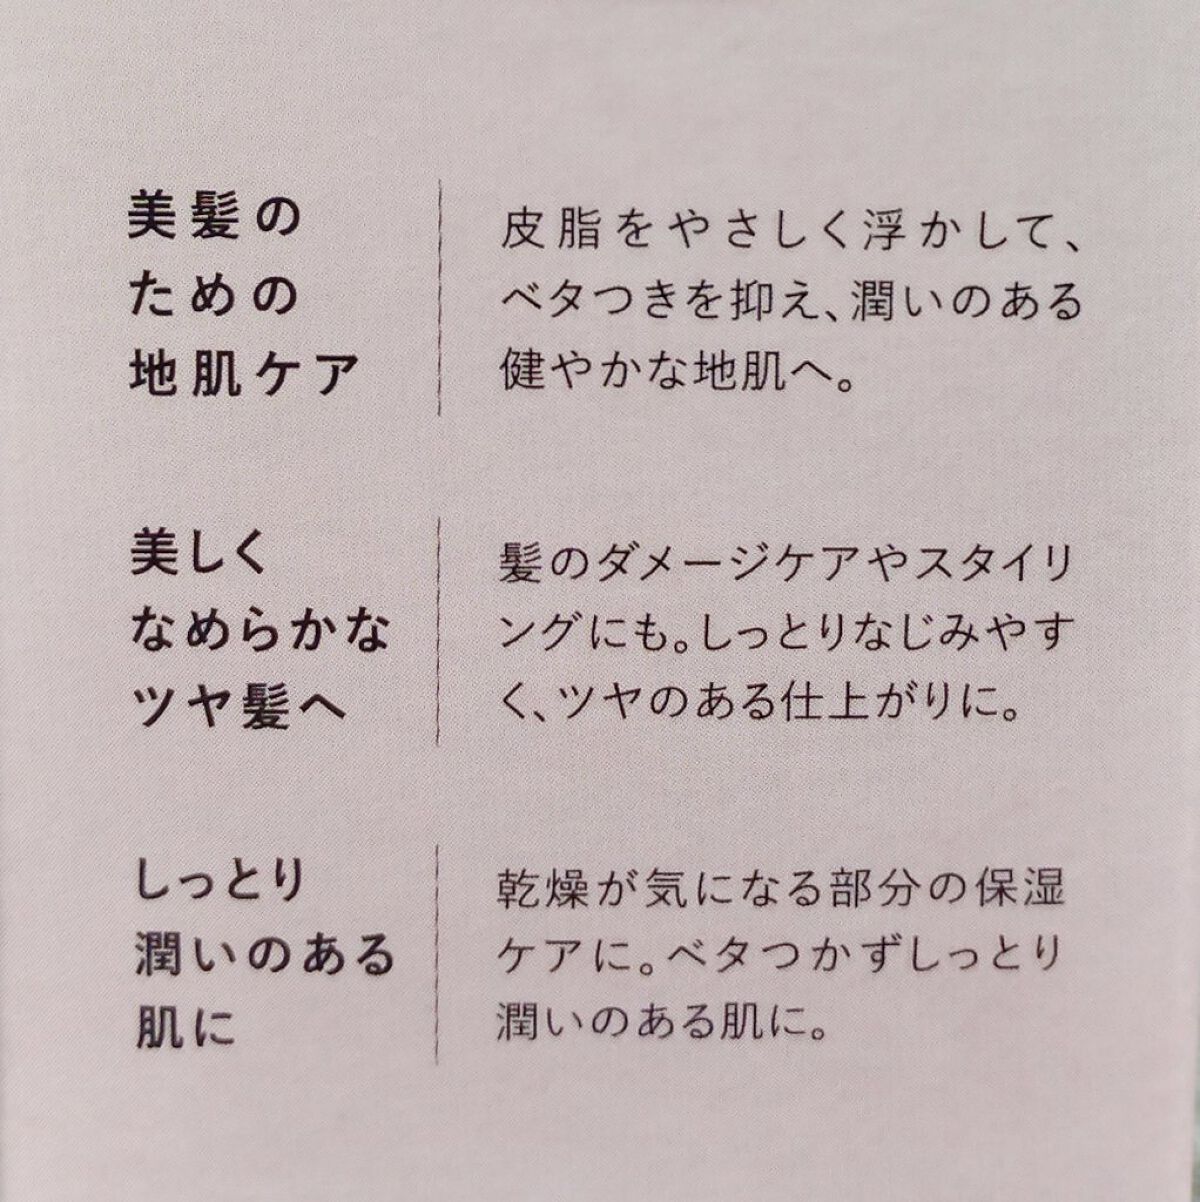 美髪の
ための
地肌ケア
皮脂をやさしく浮かして、
ベタつきを抑え、潤いのある
健やかな地肌へ。
美しく
なめらかな
ツヤ髪へ
髪のダメージケアやスタイリ
ングにも。しっとりなじみやす
く、ツヤのある仕上がりに。
しっとり
潤いのある
肌に
乾燥が気になる部分の保湿
ケアに。ベタつかずしっとり
潤いのある肌に。